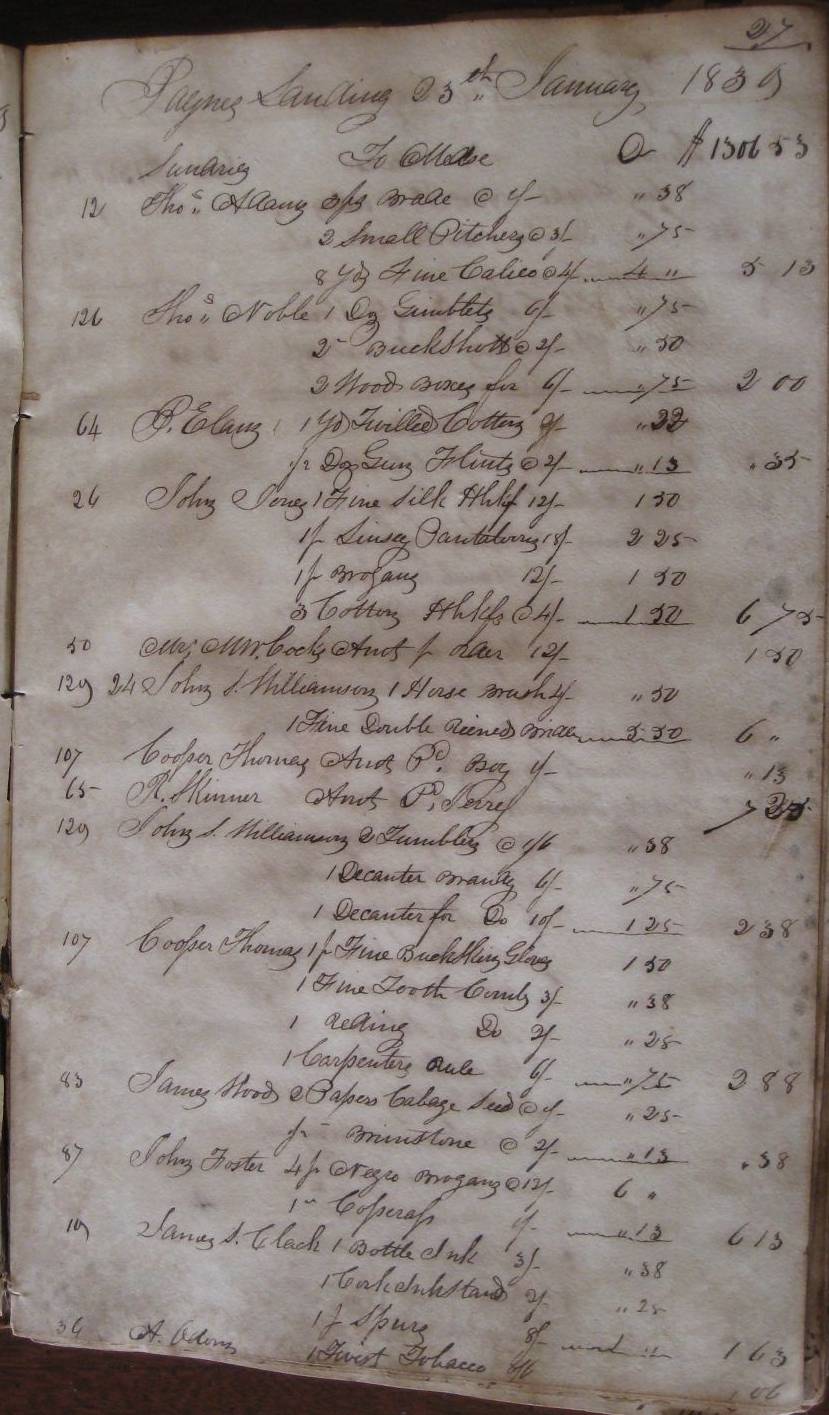 27
Paynes Landing 23th January 1839
Sundries To Mdse Dr $1306 53
12 Thos. Adams 3 ps @ 1/- " 38
2 Small Pitchers @ 3/- " 75
8 Yds Fine Calico @ 4/- 4 " 5 13
126 Thos. Noble 1 Dz Gimblets 6/- " 75
2 " Buckshott @ 2/- " 50
2 Wood Boxes for 6/- " 75 2 00
64 P. Elam 1 Yd Twilled Cotton " 22
1/2 Dz Gun Flints @ 2/- " 13 " 35
26 John Jones 1 Fine Silk Hhkf 12/- 1 50
1 p Linsey Pantaloons 18/- 2 25
1 p Brogans 12/- 1 50
3 Cotton Hhkfs @ 4/- 1 50 6 75
50 Cocks Amt p 12/- 1 50
129 24 John S. Williamson 1 Horse Brush 4/- " 50
1 Fine Double Reined Bridle 5 50 6 "
107 Cooper Thomas Amt Pd. Boy 1/- " 13
65 R. Skinner Amt Pd. Ferry
129 John S. Williamson 2 Tumblers @ 1/6 " 38
1 Decanter Brandy 6/- " 75
1 Decanter for Do 10/- 1 25 2 38
107 Cooper Thomas 1 p Fine Buckskin Gloves 1 50
1 Fine Tooth Comb 3/- " 38
1 Do 2/- " 25
1 Carpenters Rule 6/- " 75 2 88
83 James Woods 2 Papers Cabage Seed @ 1/- " 25
Brimstone @ 2/- " 13 " 38
87 John Foster 4 p Negro Brogans @ 12/- 6 "
1 " Copperas 1/- " 13 6 13
19 James S. Clack 1 Bottle Ink 3/- " 38
1 Cork Inkstand 2/- " 25
1 p Spurs 8/- 1 " 1 63
36 A. Odom 1 Twist Tobacco